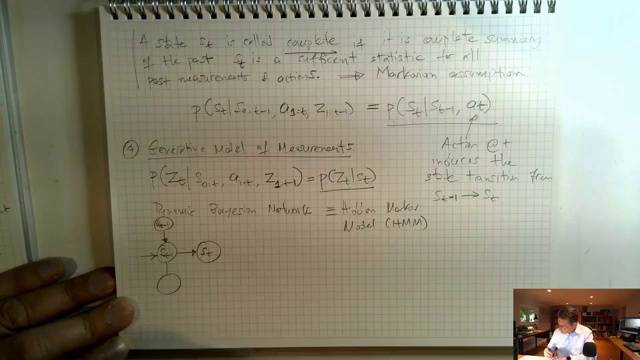 A state St is called complete if it is complete summary
of the past St is a sufficient statistic for all
past measurements & actions. ⟹ Markovian assumption
p(St|S0:t-1, a1:t, Z1:t-1) = p(St|St-1, at)
Action @t
induces the
state transition from
St-1 → St
④ Generative Model of Measurements
p(Zt|S0:t, a1:t, Z1:t-1) = p(Zt|St)
Dynamic Bayesian Networks ≡ Hidden Markov
Model (HMM)
St-1
St